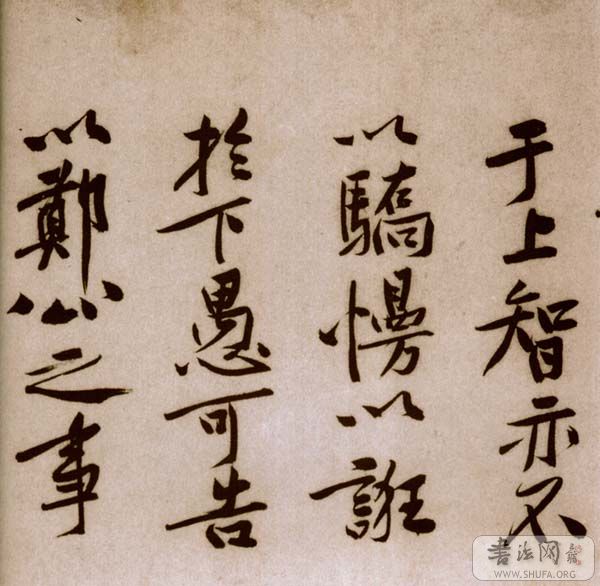 于上智亦不
以驕慢以誑
於下愚可告
以鄭公之事
書法网
WWW.SHUFA.ORG